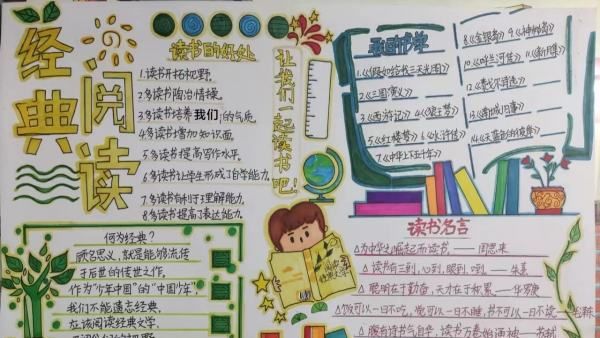 经典
阅读
读书的好处
1.读书开拓视野。
2.多读书陶冶情操。
3.多读书培养我们的气质
4.多读书增加知识面
5.多读书提高写作水平。
6.多读书让学生形成了自学能力。
7.多读书有利于理解能力。
8.多读书提高了表达能力。
让我们一起读书吧!
我的书单
1.《假如给我三天光明》
2.《三国演义》
3.《西游记》
5.《红楼梦》
6.《水浒传》
7.《中华上下五千年》
8.《金银岛》
9.《神秘岛》
10.《呼兰河传》
何为经典?
顾名思义,就是能够流传
于后世的传世之作。
作为“少年中国”的“中国少年”
我们不能遗忘经典,
应该阅读经典文学,
读书名言
为中华之崛起而读书 —— 周恩来
读书有三到,心到,眼到,口到。—— 朱熹
聪明在于勤奋,天才在于积累 —— 华罗庚
饭可以一日不吃,觉可以一日不睡,书不可以一日不读
腹有诗书气自华,读书万卷始通神 —— 苏轼